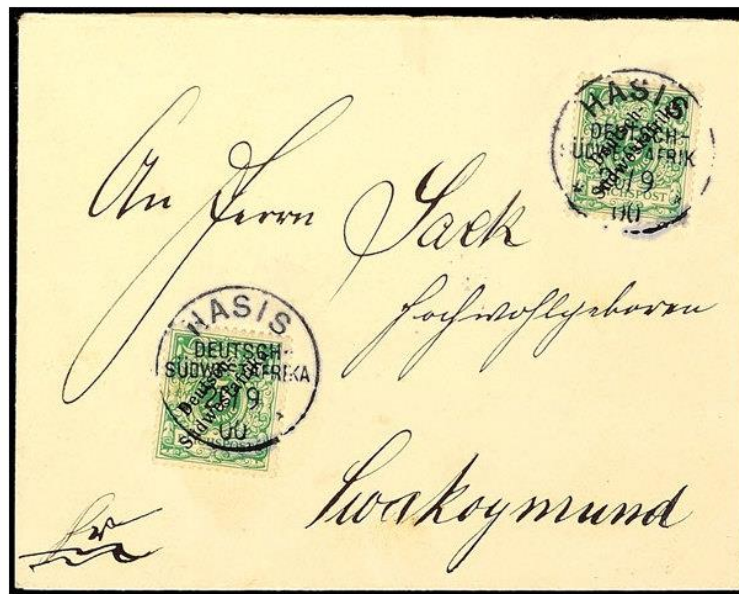 HASIS
DEUTSCH-
SÜDWESTAFRIK
Deutsch-
Südwestafrika
/9
00
REICHSPOST
An Herrn Sack
Hochwohlgeboren
HASIS
DEUTSCH-
SÜDWESTAFRIKA
Deutsch-
Südwestafrika
/9
00
REICHSPOST
Swakopmund